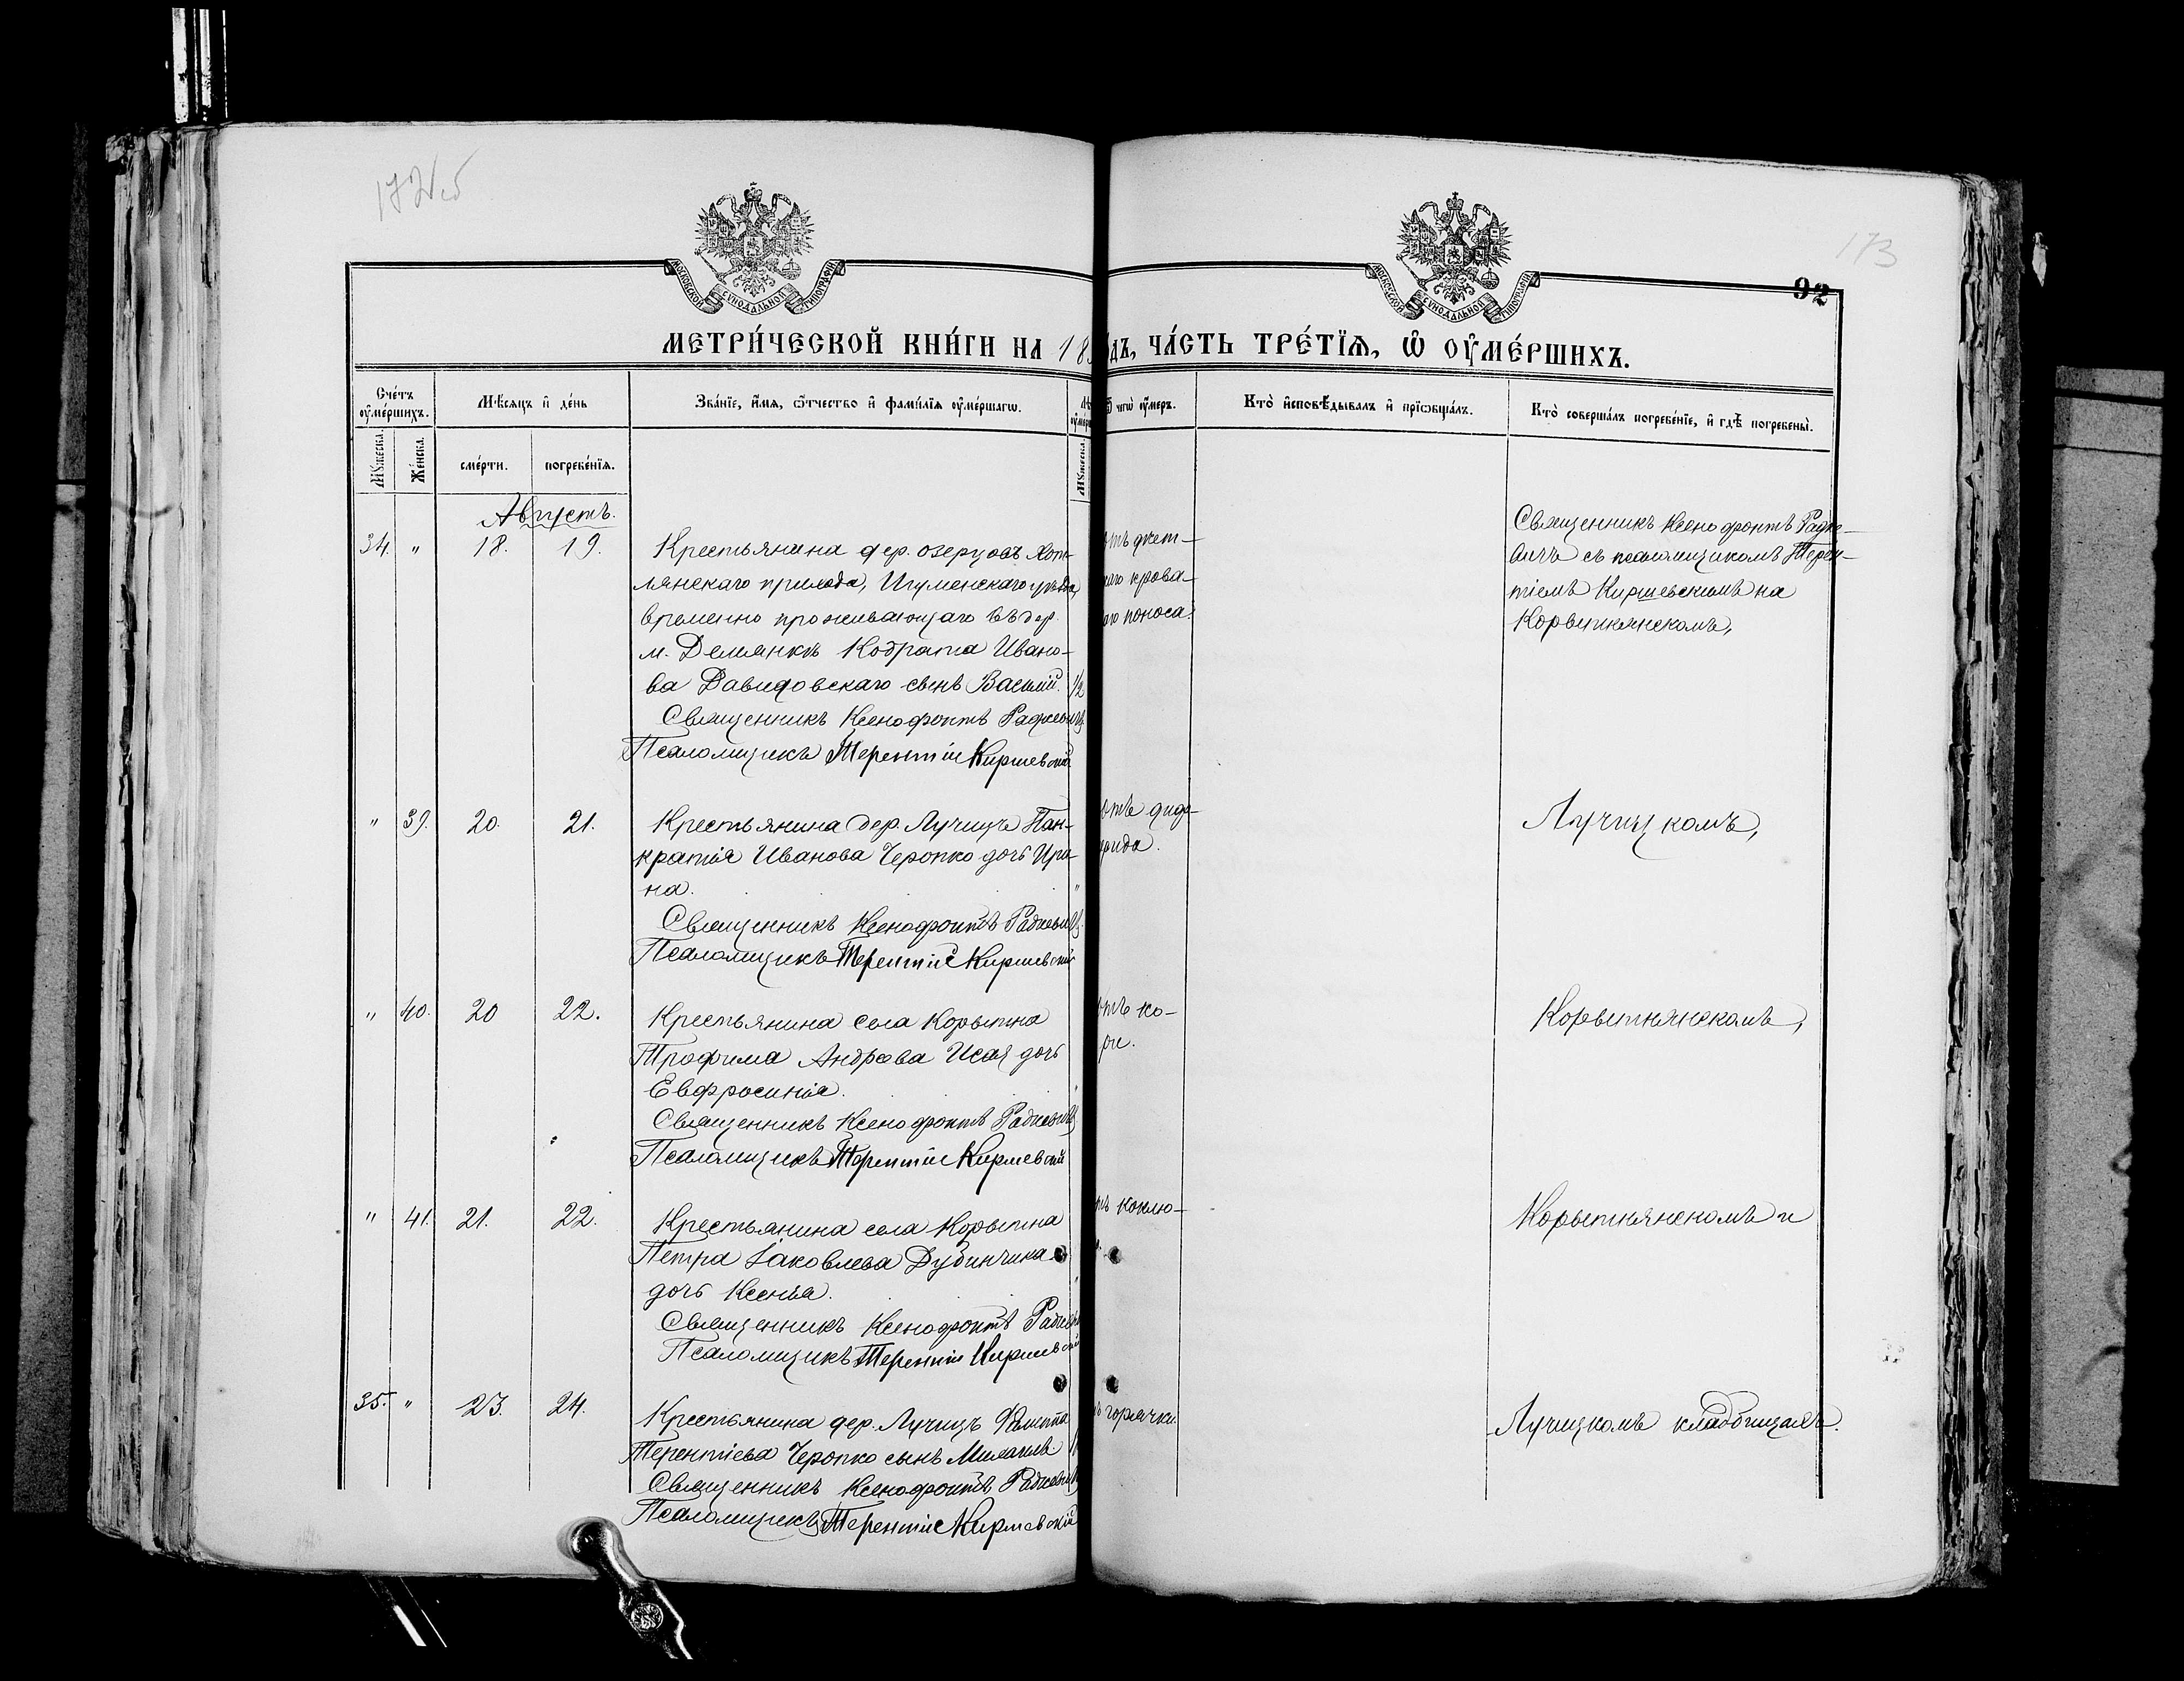 172об
173
92
МОСКОВСКОЙ СѴНОДАЛЬНОЙ ТИПОГРАФІИ
МОСКОВСКОЙ СѴНОДАЛЬНОЙ ТИПОГРАФІИ
МЕТРИ́ЧЕСКОЙ КНИ́ГИ НА 18 ДЪ, ЧА́СТЬ ТРЕ́ТЇѦ, Ѡ҆ ОУ҆МЕ́РШИХЪ.
Сче́тъ оу҆ме́ршихъ.
Мѣ́сяцъ и҆ де́нь
Зва́нїе, и҆́мѧ, ѻ҆́тчество и҆ фами́лїѧ оу҆ме́ршагѡ.
чегѡ̀ оу҆́меръ.
Кто̀ и҆сповѣ́дывалъ и҆ прїѡбща́лъ.
Кто̀ соверша́лъ погребе́нїе, и҆ гдѣ̀ погребены̀.
Мꙋ́жеска.
Же́нска.
сме́рти.
погребе́нїѧ.
Мꙋ́жеска.
Августъ.
34. " 18. 19.
Крестьянина дер. Озерцовъ Хот-
лянскаго прихода, Игуменскаго уѣзда,
временно проживающаго въ дер.
м. Делянкѣ Кодрата Ивано-
ва Давидовскаго сынъ Василій. 1/2
Священникъ Ксенофонтъ Радкевичъ
Псаломщикъ Терентій Киршевскій
отъ дѣт-
крова-
поноса.
Священникъ Ксенофонтъ Радке-
вичъ съ псаломщикомъ Терен-
тіемъ Киршевскимъ на
Корытнянскомъ,
" 39. 20. 21.
Крестьянина дер. Лучицъ Пан-
кратія Иванова Черопко дочь Ири-
на. "
Священникъ Ксенофонтъ Радкевичъ
Псаломщикъ Терентій Киршевскій
Лучицкомъ,
" 40. 20 22.
Крестьянина села Корытна
Трофима Андреева Исая дочь
Евфросинія.
Священникъ Ксенофонтъ Радкевичъ
Псаломщикъ Терентій Киршевскій
отъ ко-
ри.
Корытнянскомъ,
" 41. 21. 22.
Крестьянина села Корытна
Петра Іаковлева Дубинчика
дочь Ксенія.
Священникъ Ксенофонтъ Радкев
Псаломщикъ Терентій Киршевскій
коклю-
Корытнянскомъ и
35. " 23. 24.
Крестьянина дер. Лучицъ
Терентіева Черопко сынъ Михаилъ
Священникъ Ксенофонтъ Радкевичъ
Псаломщикъ Терентій Киршевскій
горячки.
Лучицкомъ кладбищахъ.